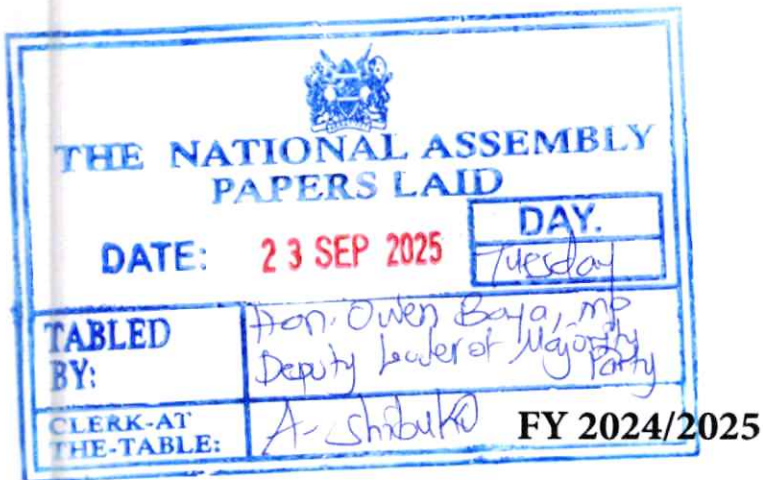 THE NATIONAL ASSEMBLY
PAPERS LAID
DATE: 23 SEP 2025
DAY.
Tuesday
TABLED BY:
Hon. Owen Baya, MP
Deputy Leader of Majority
Party
CLERK-AT THE-TABLE:
A. Shibuko
FY 2024/2025